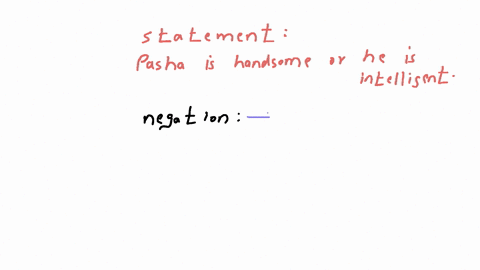 statement:
Pasha is handsome or he is
intelligent.
negation: